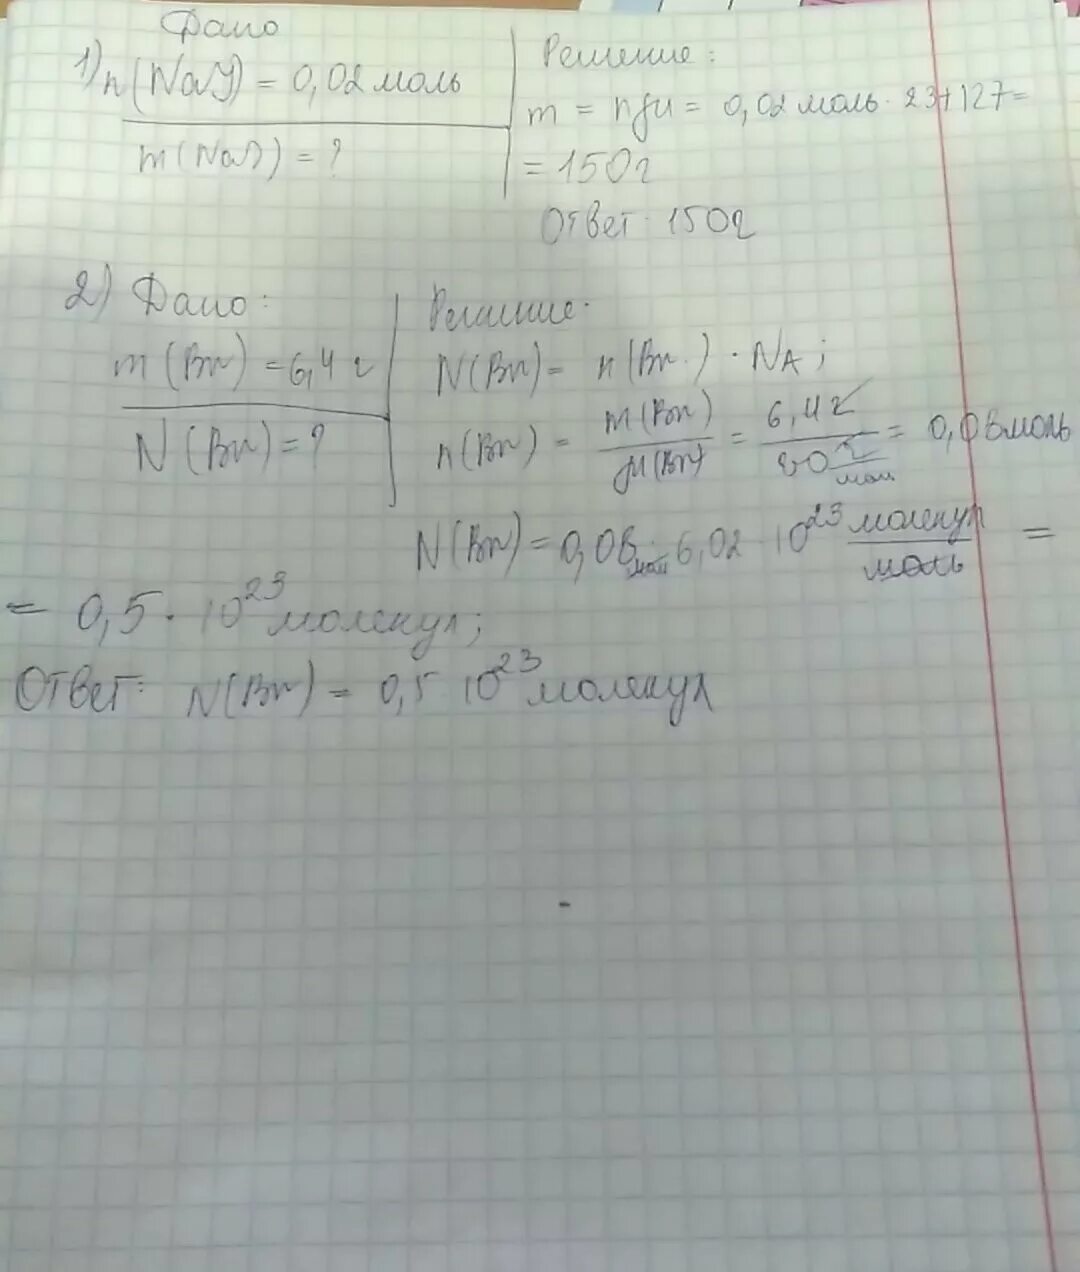 Дано
1) n(NaJ) = 0,02 моль
m(NaJ) = ?
Решение:
m = n μ = 0,02 моль · 23+127=
= 150 г
Ответ: 150г
2) Дано:
m (Br) = 6,4 г
N (Br) = ?
Решение:
N(Br) = n(Br) · NA;
n(Br) = m(Br) / μ(Br) = 6,4 г / 80 г/мол = 0,08 моль
N(Br) = 0,08 мол · 6,02 · 10²³ молекул/моль =
= 0,5 · 10²³ молекул;
Ответ: N(Br) = 0,5 · 10²³ молекул